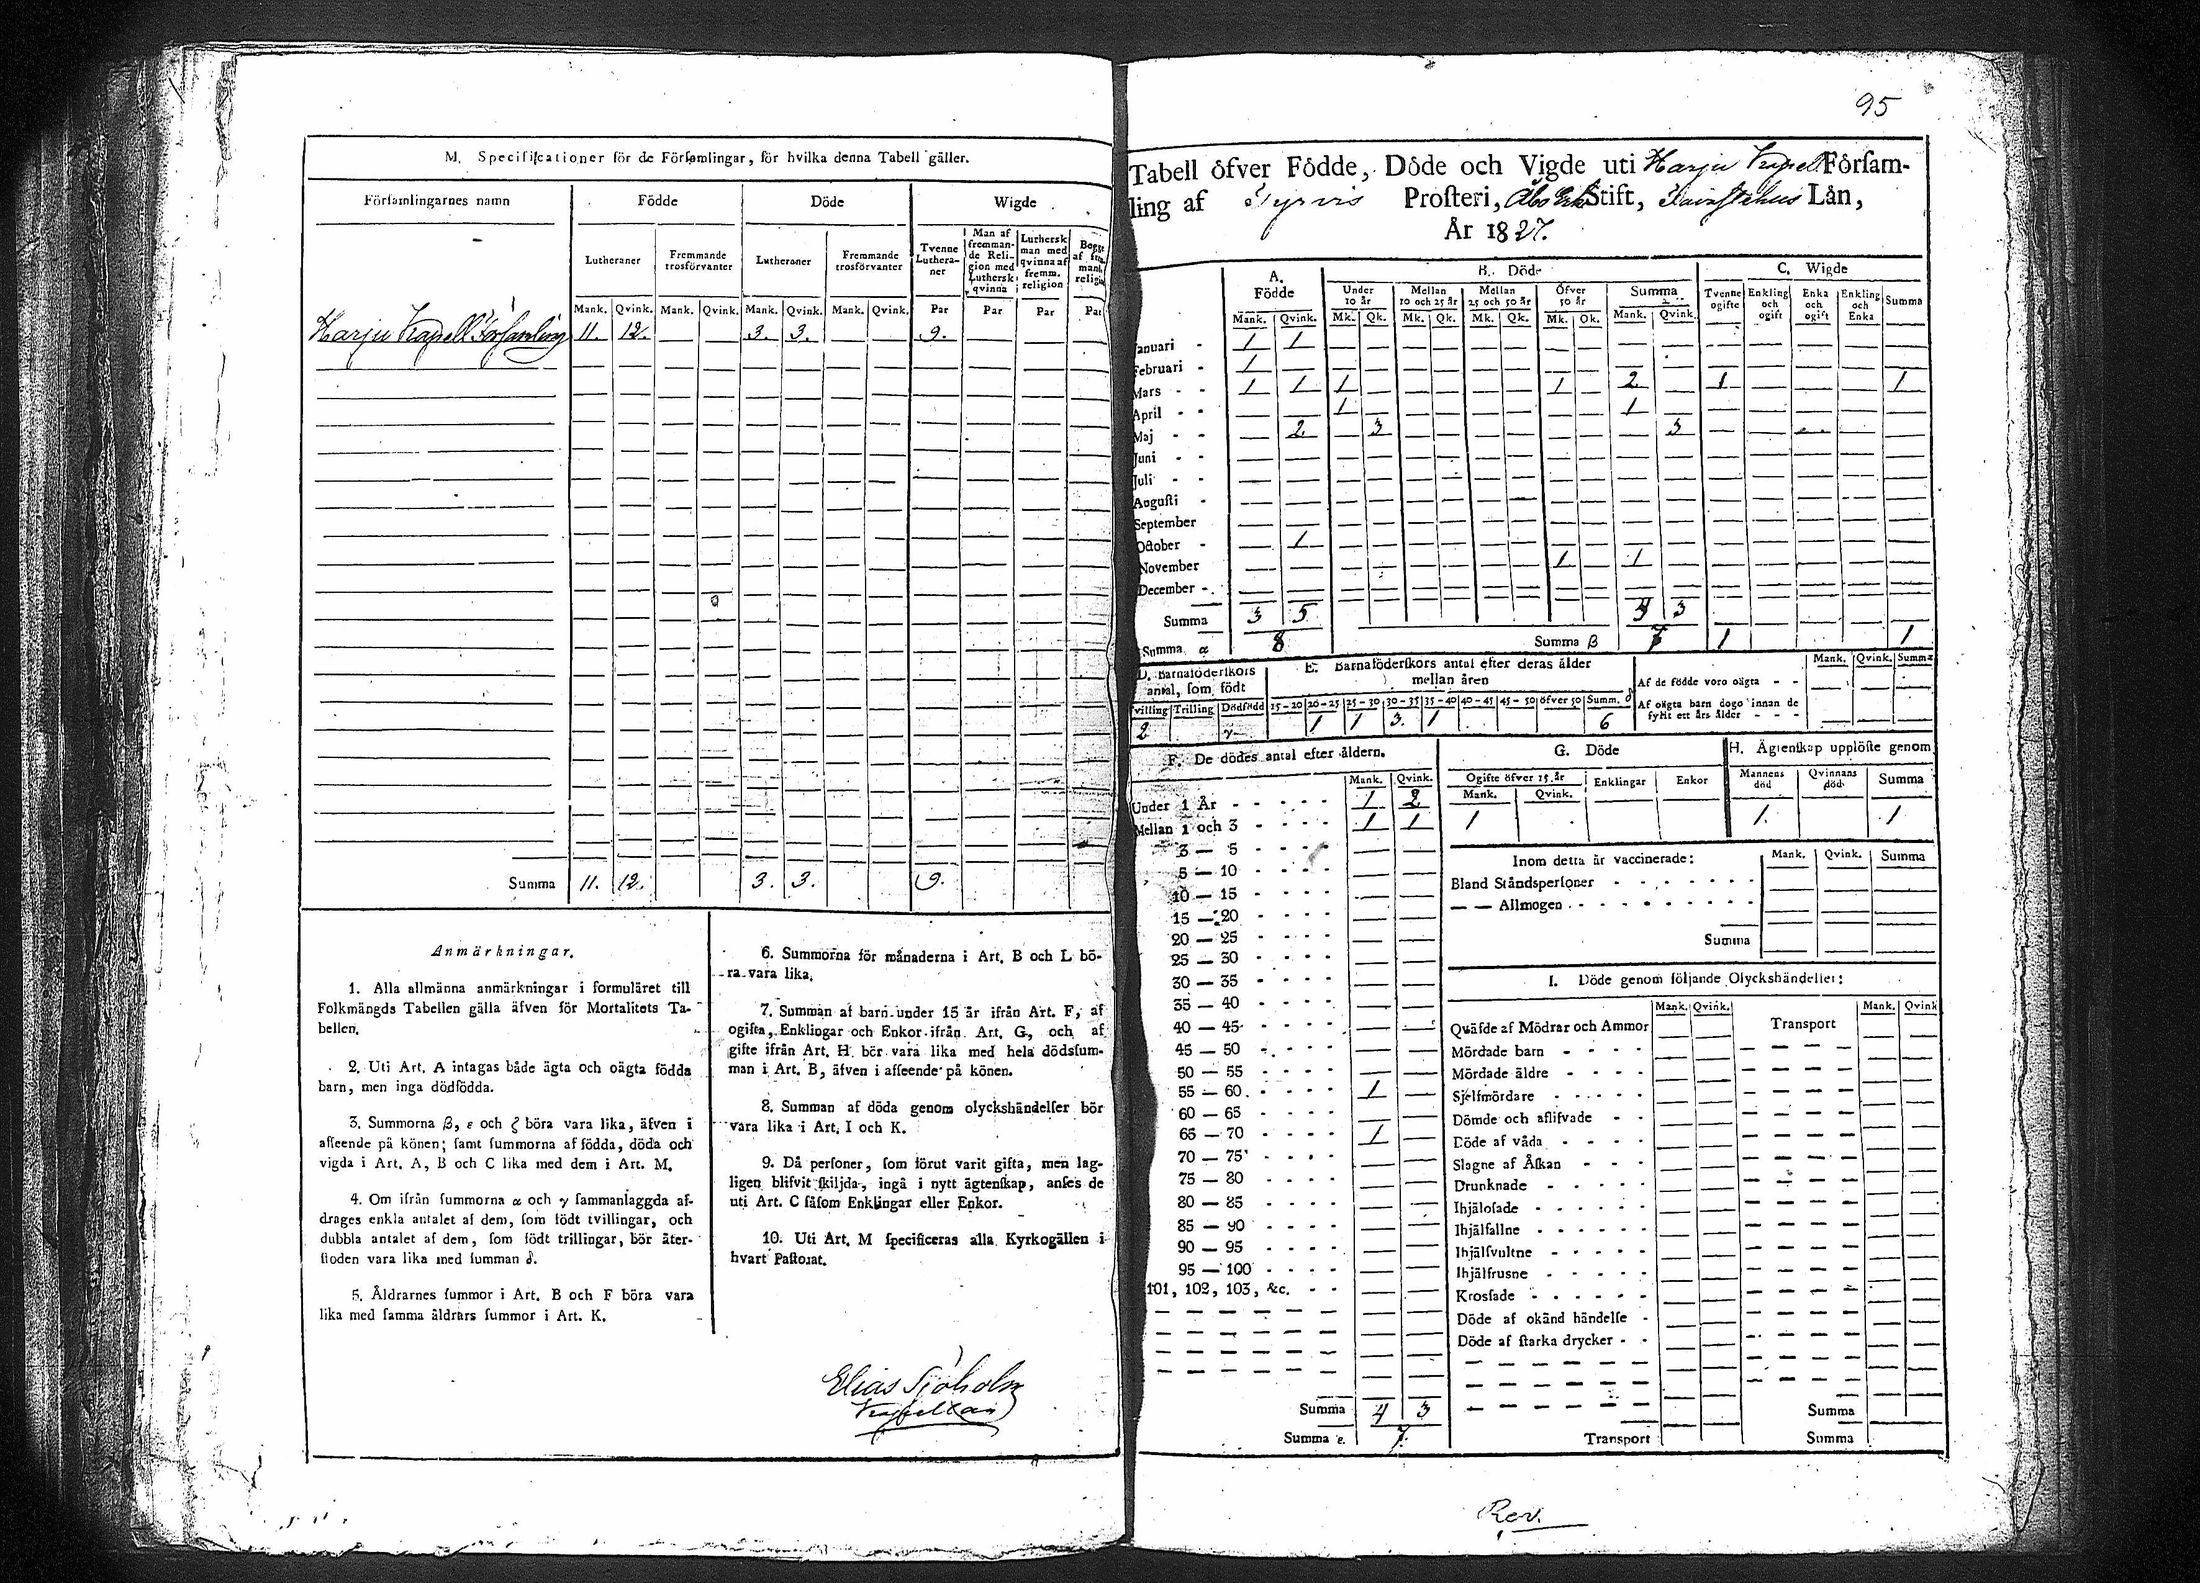 M. Specificationer för de Förſamlingar, för hvilka denna Tabell gäller.
Förſamlingarnes namn Födde Döde Wigde
Lutheraner Fremmande trosförvanter Lutheraner Fremmande trosförvanter Tvenne Lutheraner Man af fremmande Religion med Lutherſk qvinna Lutherſk man med qvinna af fremm. religion
Mank. Qvink. Mank. Qvink. Mank. Qvink. Mank. Qvink. Par Par Par Par
Harju Kapell Förſamling 11. 12. — — 3. 3. — — 9. — — —
Summa 11. 12. 3. 3. 9.
Anmärkningar.
1. Alla allmänna anmärkningar i formuläret till
Folkmängds Tabellen gälla äfven för Mortalitets Ta-
bellen.
2. Uti Art. A intagas både ägta och oägta födda
barn, men inga dödfödda.
3. Summorna β, ε och ζ böra vara lika, äfven i
afſeende på könen; ſamt ſummorna af födda, döda och
vigda i Art. A, B och C lika med dem i Art. M.
4. Om ifrån ſummorna α och γ ſammanlaggda af-
drages enkla antalet af dem, ſom födt tvillingar, och
dubbla antalet af dem, ſom födt trillingar, bör åter-
ſtoden vara lika med ſumman δ.
5. Åldrarnes ſummor i Art. B och F böra vara
lika med ſamma åldrars ſummor i Art. K.
6. Summorna för månaderna i Art. B och L bö-
ra vara lika.
7. Summan af barn under 15 år ifrån Art. F, af
ogifta, Enklingar och Enkor ifrån Art. G, och af
gifte ifrån Art. H bör vara lika med hela dödsſum-
man i Art. B, äfven i afſeende på könen.
8. Summan af döda genom olyckshändelſer bör
vara lika i Art. I och K.
9. Då perſoner, ſom förut varit gifta, men lag-
ligen blifvit ſkiljda, ingå i nytt ägtenſkap, anſes de
uti Art. C ſåſom Enklingar eller Enkor.
10. Uti Art. M ſpecificeras alla Kyrkogällen i
hvart Paſtorat.
Elias Sjöholm
95
Tabell öfver Födde, Döde och Vigde uti Harju Kapell Förſam-
ling af Tyrvis Proſteri, Åbo Stift, Lån,
År 1827.
A. Födde B. Döde C. Wigde
Under 10 år Mellan 10 och 25 år Mellan 25 och 50 år Öfver 50 år Summa Tvenne ogifte Enkling och ogift Enka och ogift Enkling och Enka Summa
Mank. Qvink. Mk. Qk. Mk. Qk. Mk. Qk. Mk. Qk. Mank. Qvink.
Januari 1 1
Februari 1 —
Mars 1 1 1 1 2 1 1
April 1 1
Maj — 2. 3 3
Juni
Juli
Auguſti
September
October — 1
November 1 1
December
Summa 3 5 4 3
Summa α 8 Summa β 7 1 1
D. Barnaföderſkors antal, ſom födt
Tvilling Trilling Dödfödd
2 γ
E. Barnaföderſkors antal efter deras ålder
mellan åren
15-20 20-25 25-30 30-35 35-40 40-45 45-50 öfver 50 Summ. δ
1 1 3. 1 6
Mank. Qvink. Summa
Af de födde voro oägta
Af oägta barn dogo innan de
fyllt ett års ålder
F. De dödes antal efter åldern.
Mank. Qvink.
Under 1 År 1 2
Mellan 1 och 3 1 1
3 — 5
5 — 10
10 — 15
15 — 20
20 — 25
25 — 30
30 — 35
35 — 40
40 — 45
45 — 50
50 — 55
55 — 60 1
60 — 65
65 — 70 1
70 — 75
75 — 80
80 — 85
85 — 90
90 — 95
95 — 100
101, 102, 103, &c.
Summa 4 3
Summa ε. 7.
G. Döde
Ogifte öfver 15 år Enklingar Enkor
Mank. Qvink.
1
H. Ägtenſkap upplöſte genom
Mannens död Qvinnans död Summa
1. 1
Inom detta år vaccinerade: Mank. Qvink. Summa
Bland Ståndsperſoner
— — Allmogen
Summa
I. Döde genom följande Olyckshändelſer:
Mank. Qvink. Mank. Qvink
Quäfde af Mödrar och Ammor Transport
Mördade barn
Mördade äldre
Sjelfmördare
Dömde och aflifvade
Döde af våda
Slagne af Åſkan
Drunknade
Ihjälofade
Ihjälfallne
Ihjälſvultne
Ihjälfrusne
Krosſade
Döde af okänd händelſe
Döde af ſtarka drycker
Summa
Transport Summa
Rev.